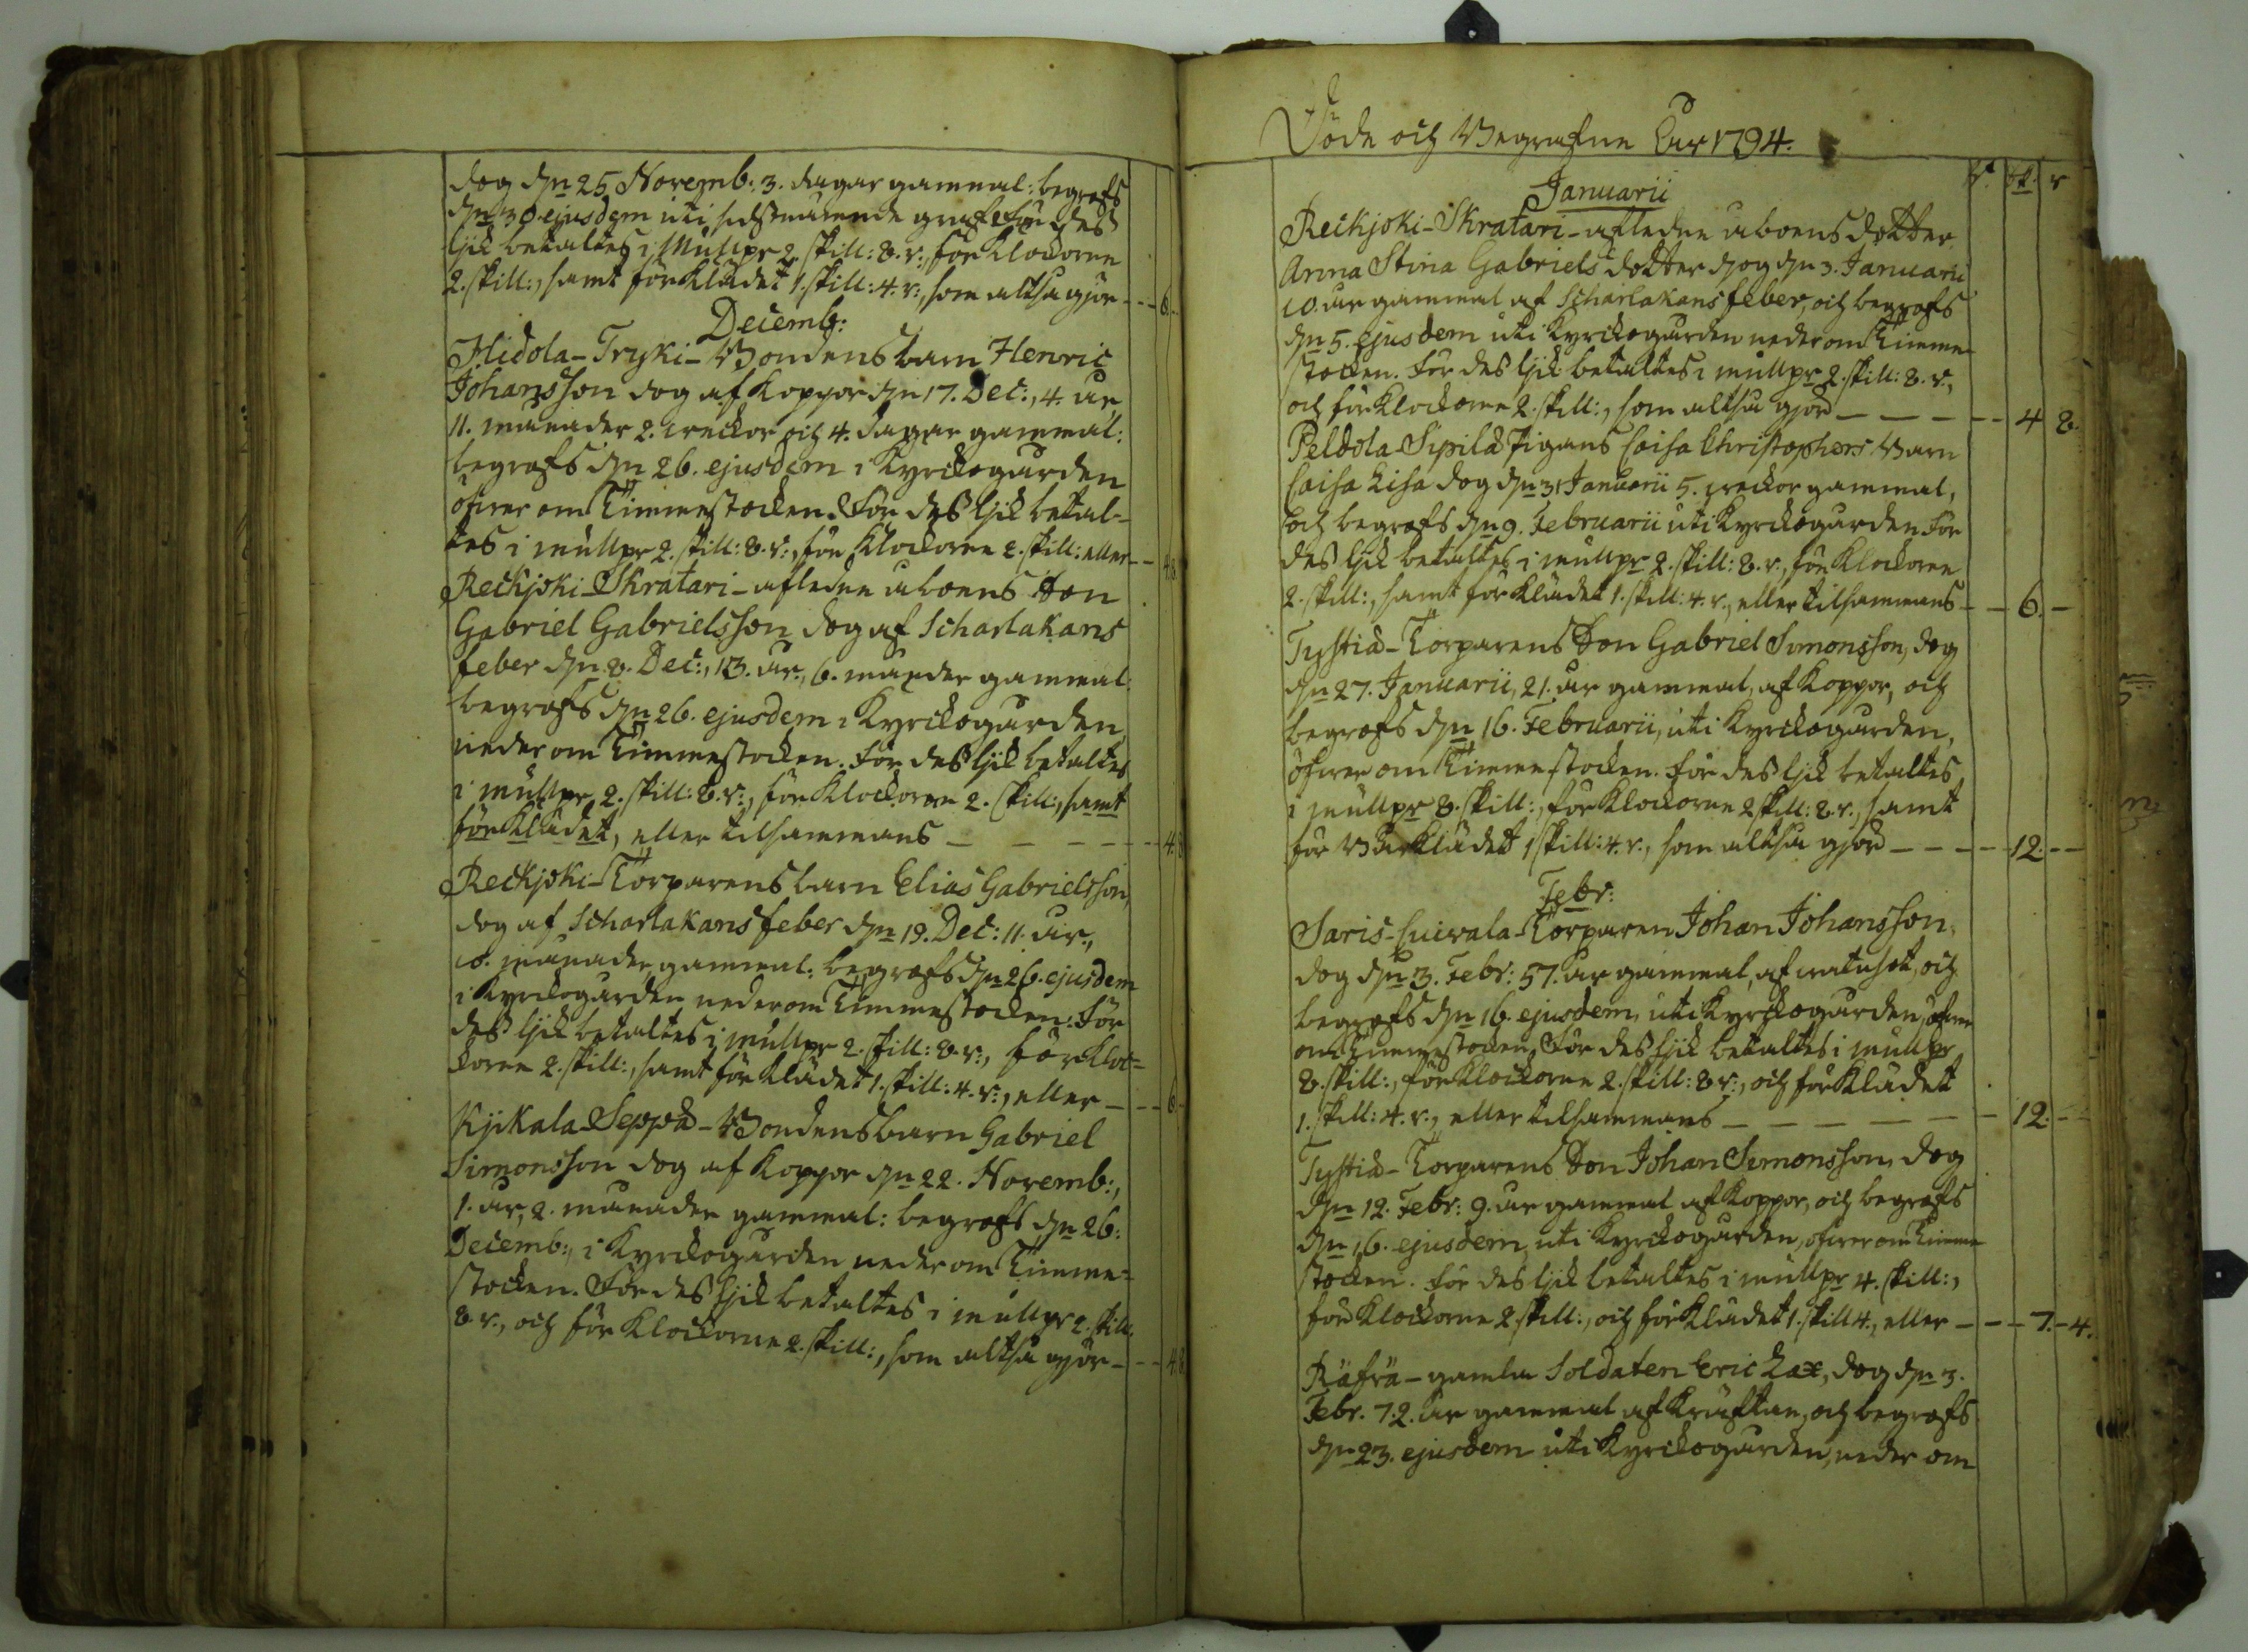 dog dn 25 Novemb: 3. dagar gammal: begrofs
dn 30 ejusdem uti sidstnämde graf. För des
lijk betaltes i Mullpr 2. skill: 8. r:, för Klockorne
2. skill:, samt för Klädet 1. skill: 4. r:, som altså gjör - - - 6. -
Decemb:
Hidola-Tryki-Bondens barn Henric
Johansson dog af Koppor dn 17. Dec:, 4. år
11. månader 2. weckor och 4. dagar gammal:
begrofs dn 26. ejusdem i Kyrckogården
öfwer om Timmestocken. För des lijk betal-
tes i mullpr 2. skill: 8. r:, för Klockorne 2. skill: eller - - 4. 8.
Reckjoki-Skratari-afledne åboens Son
Gabriel Gabrielsson dog af Scharlakans
feber dn 8. Dec:, 13. år, 6. månader gammal:
begrofs dn 26. ejusdem i Kyrckogården,
nederom Timmestocken. För des lijk betaltes
i mullpr 2. skill: 8. r:, för Klockorne 2. skill:, samt
för Klädet, eller tilsammans - - - - - 4. 8
Reckjoki-Torparens barn Elias Gabrielsson,
dog af Scharlakansfeber dn 19. Dec: 11. år,
10. månader gammal: begrofs dn 26. ejusdem
i Kyrckogården nederom Timmestocken: För
des lijk betaltes i mullpr 2. skill: 8. r:, för Kloc-
korne 2. skill:, samt för Klädet 1. skill: 4. r:, eller - - - 6. -
Kjikala-Seppä-Bondens barn Gabriel
Simonsson dog af Koppor dn 22. Novemb:,
1. år, 2. månader gammal: begrofs dn 26:
Decemb:, i Kyrckogården nederom Timme-
stocken. För des lijk betaltes i mullpr 2. skill:
8. r., och för Klockorne 2. skill:, som altså gjör - - - 4. 8
Döde och Begrafne Åhr 1794.
sk. r
Januarii
Reckjoki-Skratari-afledne åboens dotter
Anna Stina Gabriels dotter dog dn 3. Januarii
10. år gammal af Scharlakansfeber, och begrofs
dn 5. ejusdem uti Kyrckogården nederom Timme-
stocken. För des lijk betaltes i mullpr 2. skill: 8. r.,
och för Klockorne 2. skill:, som altså gjör - - - - - 4 8.
Peldola-Sipilä Pigans Caisa Christophers Barn
Caisa Lisa dog dn 31 Januarii 5. weckor gammal,
och begrofs dn 9. Februarii uti Kyrckogården. För
des lijk betaltes i mullpr 2. skill: 8. r., för Klockorne
2. skill:, samt för Klädet 1. skill: 4. r., eller tilsammans - - 6. -
Tystiä-Torparens Son Gabriel Simonsson, dog
dn 27. Januarii, 21. år gammal, af Koppor, och
begrofs dn 16. Februarii, uti Kyrckogården,
öfwer om Timmestocken. för des lijk betaltes,
i mullpr 8. skill:, för Klockorne 2 skill: 8. r., samt
för Bårklädet 1 skill: 4. r., som altså gjör - - - - 12. - -
Febr:
Saris-Cuivala-Torparen Johan Johansson,
dog dn 3. Febr: 57. år gammal, af watusot, och
begrofs dn 16. ejusdem, uti Kyrckogården, öfwer
om Timmestocken. För des lijk betaltes i mullpr
8. skill:, för Klockorne 2. skill: 8 r:, och för Klädet
1. skill: 4. r., eller tilsammans - - - - - - 12. - -
Tystiä-Torparens Son Johan Simonsson, dog
dn 12. Febr: 9. år gammal af Koppor, och begrofs
dn 16. ejusdem, uti Kyrckogården, öfwer om Timme
stocken. För des lijk betaltes i mullpr 4. skill:,
för Klockorne 2. skill:, och för Klädet 1. skill 4., eller - - - 7. - 4.
Räfvä-gamla Soldaten Eric Lax, dog dn 3.
Febr. 72. år gammal af Kräftan, och begrofs
dn 23. ejusdem uti Kyrckogården, neder om